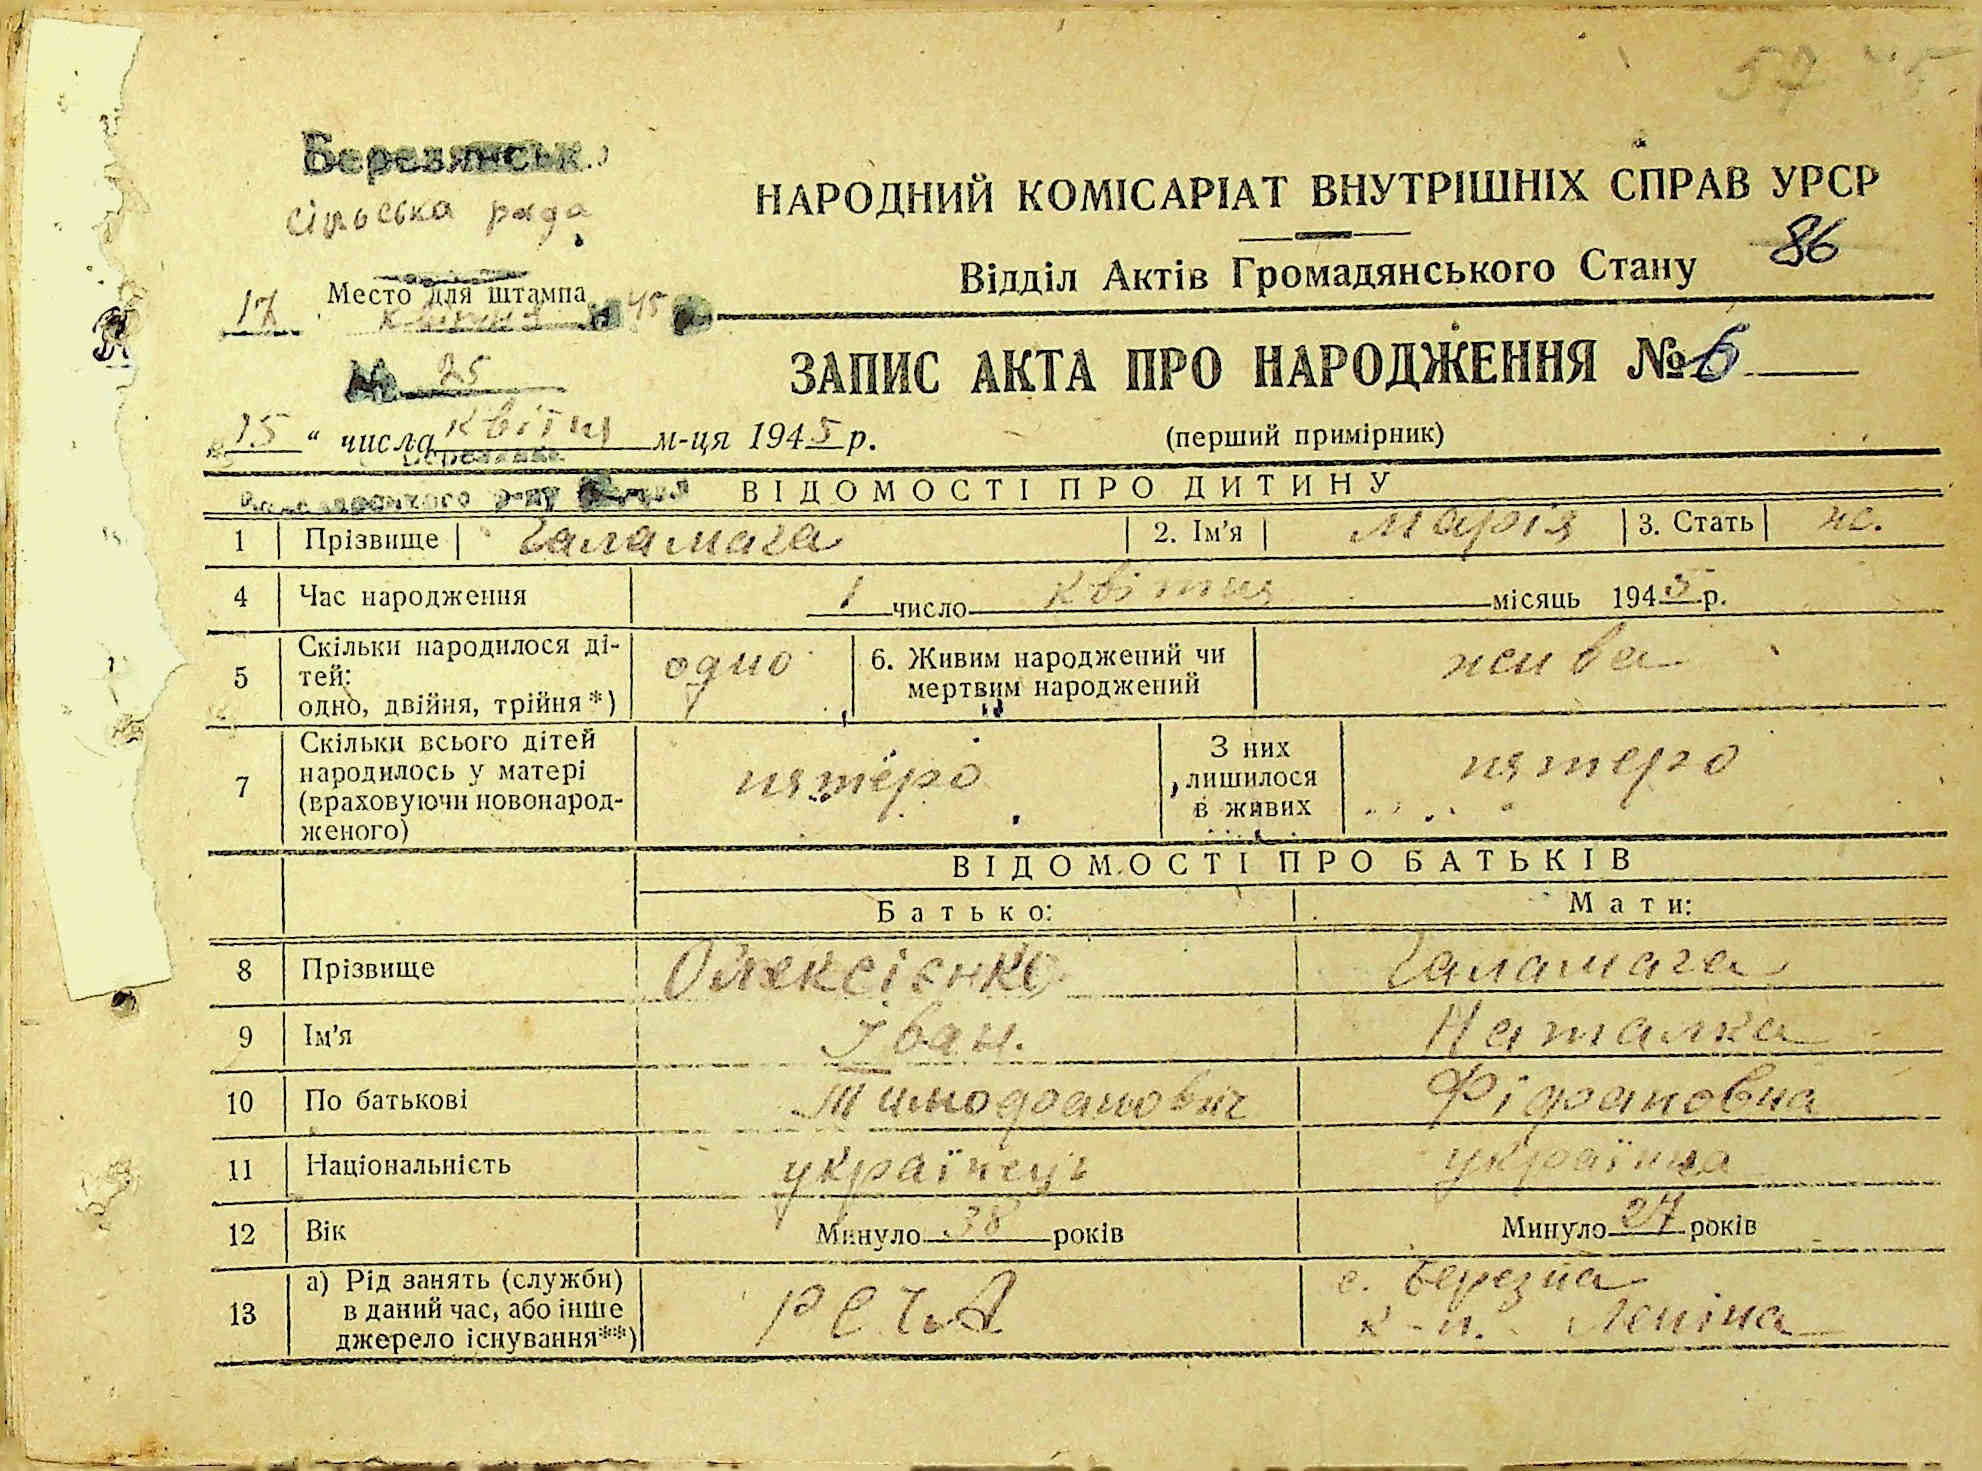 57
Березянськ.
сільська рада
НАРОДНИЙ КОМІСАРІАТ ВНУТРІШНІХ СПРАВ УРСР
86
Відділ Актів Громадянського Стану
Место для штампа
17 квітня 45
№ 25
ЗАПИС АКТА ПРО НАРОДЖЕННЯ № 6
„15“ числа квітня м-ця 1945 р. (перший примірник)
ВІДОМОСТІ ПРО ДИТИНУ
1 Прізвище Галамага 2. Ім'я Марія 3. Стать ж.
4 Час народження 1 число квітня місяць 1945 р.
5 Скільки народилося ді-
тей:
одно, двійня, трійня*) одно 6. Живим народжений чи
мертвим народжений жива
7 Скільки всього дітей
народилось у матері
(враховуючи новонарод-
женого) пятеро З них
лишилося
в живих пятеро
ВІДОМОСТІ ПРО БАТЬКІВ
Батько: Мати:
8 Прізвище Олексієнко Галамага
9 Ім'я Іван. Наталка
10 По батькові Тимофанович Фідрановна
11 Національність українець українка
12 Вік Минуло 38 років Минуло 27 років
13 а) Рід занять (служби)
в даний час, або інше
джерело існування**) РСЧА с. Березна
к-п. Леніна